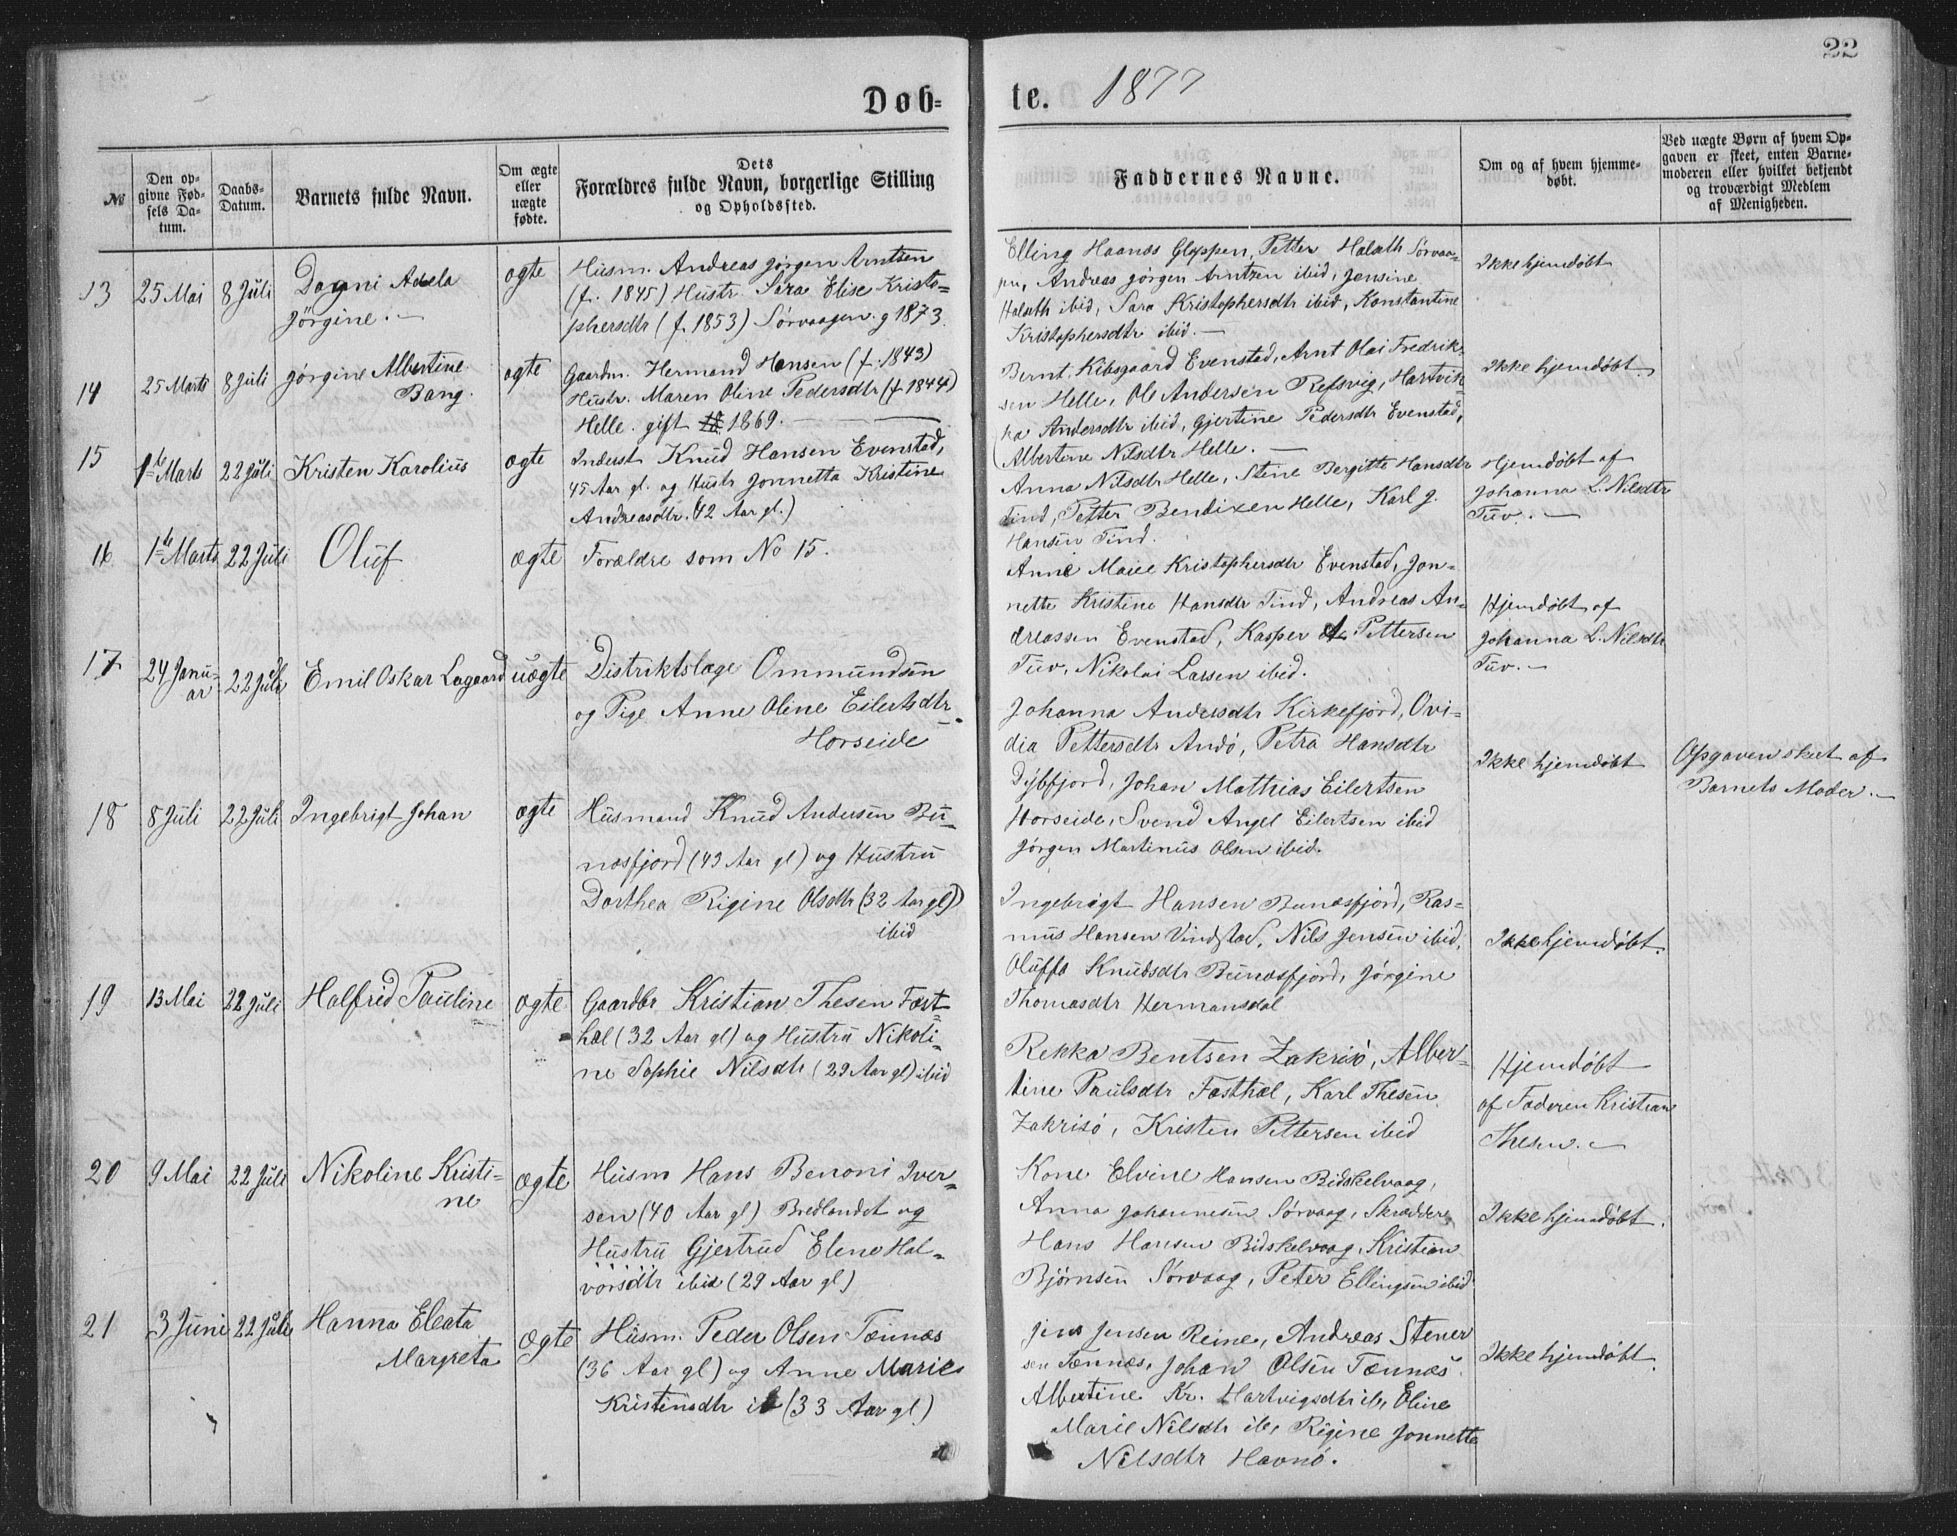 22
Døb-
te. 1877
№
Den op-
givne Fød-
sels Da-
tum.
Daabs-
Datum.
Barnets fulde Navn.
Om ægte
eller
uægte
fødte.
Dets
Forældres fulde Navn, borgerlige Stilling
og Opholdssted.
Faddernes Navne.
Om og af hvem hjemme-
døbt.
Ved uægte Børn af hvem Op-
gaven er skeet, enten Barne-
moderen eller hvilket bekjendt
og troværdigt Medlem
af Menigheden.
13
25 Mai
8 Juli
Dagni Adela
Jörgine. -
ægte
Husm. Andreas Jörgen Arntsen
(f. 1845) Hustr. Sara Elise Kristo-
phersdtr (f. 1853) Sörvaagen. g 1873.
Elling Haanæs Gloppen, Petter Halseth Sörvaa-
gen, Andreas Jörgen Arntzen ibid, Jensine
Halseth ibid, Sara Kristophersdtr ibid, Konstantine
Kristophersdtr ibid. -
Ikke hjemdöbt
14
25 Marts
8 Juli
Jörgine Albertine
Bang.
ægte
Gaardm. Hermand Hansen (f. 1843)
Hustr. Maren Oline Pedersdtr (f 1844)
Helle. gift 1869.
Bernt Kibsgaard Evenstad, Arnt Olai Fredrik-
sen Helle, Ole Andersen Refsvig, Hartvik-
ka Andersdtr ibid, Gjertine Pedersdtr Evenstad,
Albertine Nilsdtr Helle. -
Ikke hjemdöbt.
15
1ste Marts
22 Juli
Kristen Karolius
ægte
Inderst Knud Hansen Evenstad,
45 Aar gl. og Hustr Jonnetta Kristine
Andreasdtr. (42 Aar gl.)
Anna Nilsdtr Helle, Stine Bergitte Hansdtr
Tind, Petter Bendixen Helle, Karl J.
Hansen Tind.
Hjemdöbt af
Johanna L. Nilsdtr
Tuv. -
16
1ste Marts
22 Juli
Oluf
ægte
Forældre som No 15.
Anne Marie Kristophersdtr Evenstad, Jon-
nette Kristine Hansdtr Tind, Andreas An-
dreassen Evenstad, Kasper A. Pettersen
Tuv, Nikolai Larsen ibid.
Hjemdöbt af
Johanna L. Nilsdtr
Tuv. -
17
24 Janu-
ar
22 Juli
Emil Oskar Lagaard
uægte
Distriktslæge Ommundsen
og Pige Anne Oline Eilertsdtr
Horseide
Johanna Andersdtr Kirkefjord, Ovi-
dia Pettersdtr Andö, Petra Hansdtr
Dybfjord, Johan Mathias Eilertsen
Horseide, Svend Angel Eilertsen ibid
Jörgen Martinus Olsen ibid.
Ikke hjemdöbt
Opgaven skeet af
Barnets Moder. -
18
8 Juli
22 Juli
Ingebrigt Johan
ægte
Husmand Knud Andersen Bu-
næsfjord (43 Aar gl) og Hustru
Dorthea Rigine Olsdtr (32 Aar gl)
ibid
Ingebrigt Hansen Bunæsfjord, Ras-
mus Hansen Vindstad, Nils Jensen ibid,
Oluffa Knudsdtr Bunæsfjord, Jörgine
Thomasdtr Hermansdal
Ikke hjemdöbt.
19
13 Mai
22 Juli
Halfred Pauline
ægte
Gaardbr Kristian Thesen Fæst-
hæl (32 Aar gl) og Hustru Nikoli-
ne Sophie Nilsdtr (29 Aar gl) ibid
Rekka Bentsen Zakrisö, Alber-
tine Paulsdtr Fæsthæl, Karl Thesen
Zakrisö, Kristen Pettersen ibid
Hjemdöbt
af Faderen Kristian
Thesen. -
20
9 Mai
22 Juli
Nikoline Kristi-
ne
ægte
Husm Hans Benoni Iver-
sen (40 Aar gl) Bredlandet og
Hustru Gjertrud Elene Hal-
vorsdtr ibid (29 Aar gl)
Kone Elvine Hansen Bidskelvaag,
Anna Johannesen Sörvaag, Skrædder
Hans Hansen Bidskelvaag, Kristian
Björnsen Sörvaag, Peter Ellingsen ibid
Ikke hjemdöbt.
21
3 Juni
22 Juli
Hanna Eleata
Margreta
ægte
Husm. Peder Olsen Tennæs
(36 Aar gl) og Anne Marie
Kristensdtr ib (33 Aar gl)
Jens Jensen Reine, Andreas Stener
sen Tennæs, Johan Olsen Tennæs.
Albertine Kr. Hartvigsdtr ib, Eline
Marie Nilsdtr ib, Rigine Jonnette
Nilsdtr Havnö.
Ikke hjemdöbt.